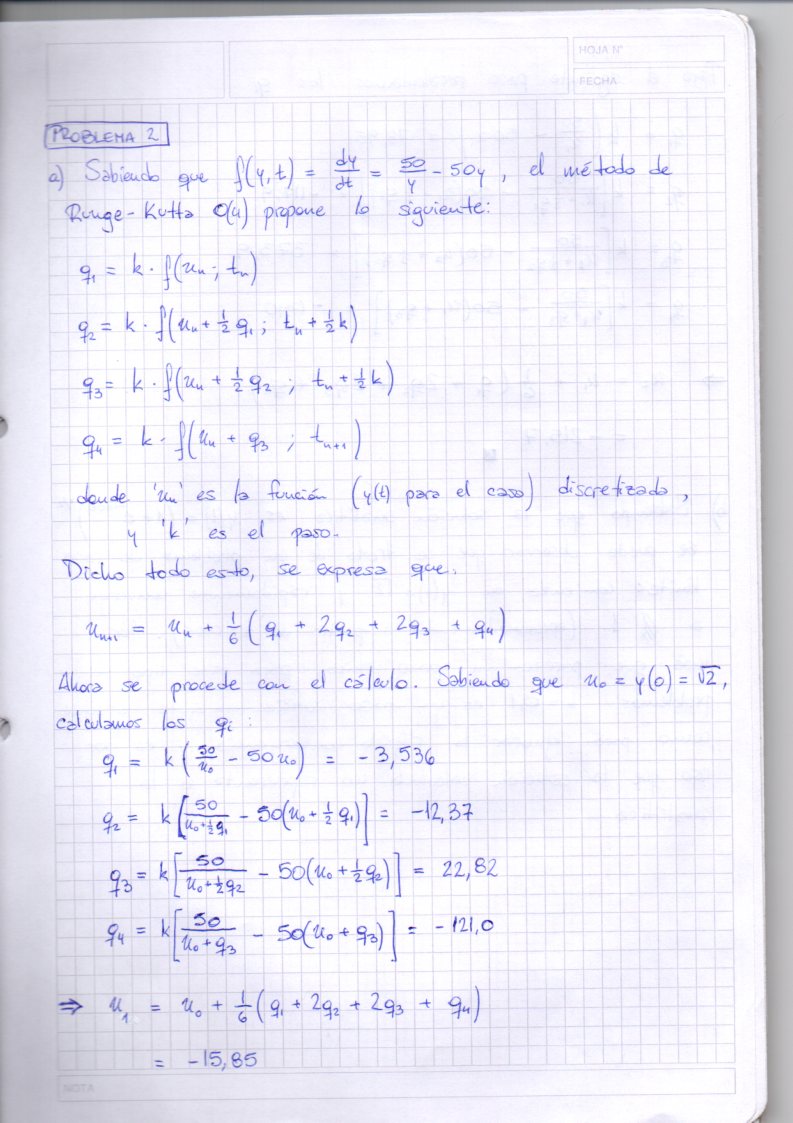 HOJA N°
FECHA
PROBLEMA 2
a) Sabiendo que f(y,t) = dy/dt = 50/y - 50y, el método de
Runge-Kutta O(4) propone lo siguiente:
q₁ = k · f(uₙ ; tₙ)
q₂ = k · f(uₙ + 1/2 q₁ ; tₙ + 1/2 k)
q₃ = k · f(uₙ + 1/2 q₂ ; tₙ + 1/2 k)
q₄ = k · f(uₙ + q₃ ; tₙ₊₁)
donde 'uₙ' es la función (y(t) para el caso) discretizada,
y 'k' es el paso.
Dicho todo esto, se expresa que:
uₙ₊₁ = uₙ + 1/6 (q₁ + 2q₂ + 2q₃ + q₄)
Ahora se procede con el cálculo. Sabiendo que u₀ = y(0) = √2,
calculamos los qᵢ:
q₁ = k (50/u₀ - 50u₀) = -3,536
q₂ = k [50/(u₀+1/2q₁) - 50(u₀ + 1/2 q₁)] = -12,37
q₃ = k [50/(u₀+1/2q₂) - 50(u₀ + 1/2 q₂)] = 22,82
q₄ = k [50/(u₀+q₃) - 50(u₀ + q₃)] = -121,0
⇒ u₁ = u₀ + 1/6 (q₁ + 2q₂ + 2q₃ + q₄)
= -15,85
NOTA